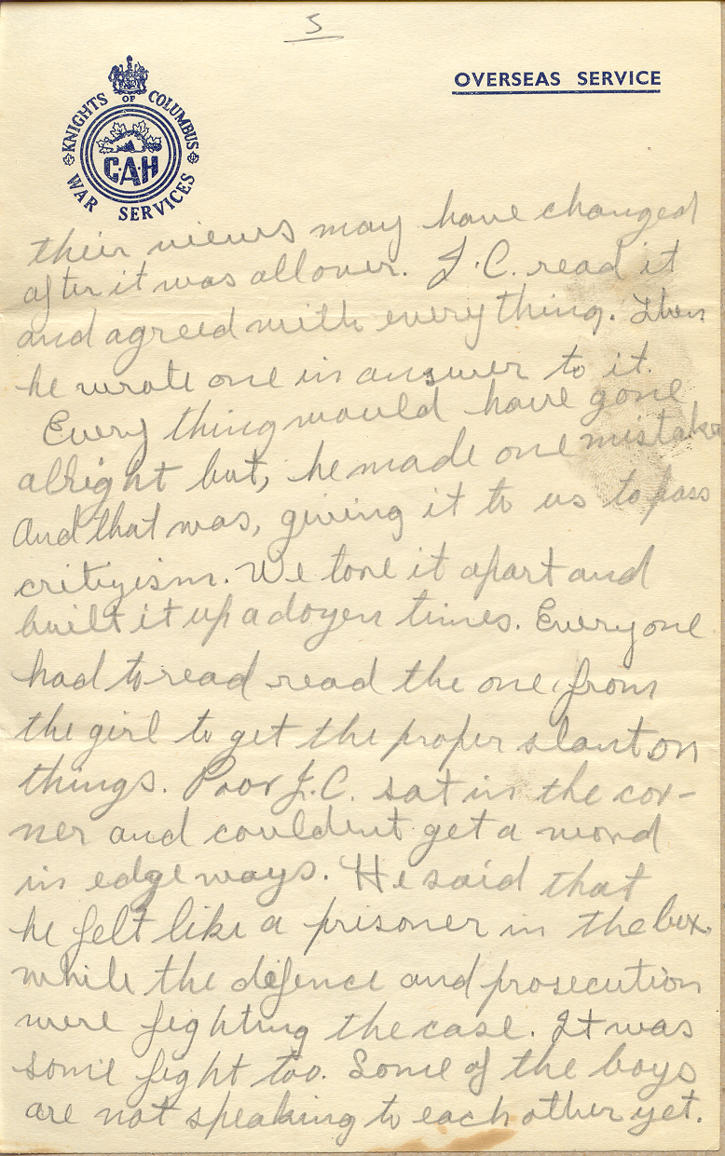 5
OVERSEAS SERVICE
KNIGHTS OF COLUMBUS
C·A·H
WAR SERVICES
their views may have changed
after it was allover. J.C. read it
and agreed with everything. Then
he wrote one in answer to it.
Every thing would have gone
allright but, he made one mistake
And that was, giving it to us to pass
critizism. We tore it apart and
built it up a dozen times. Everyone
had to read read the one, from
the girl to get the proper slant on
things. Poor J.C. sat in the cor-
ner and couldent get a word
in edgeways. He said that
he felt like a prisoner in the box,
while the defence and prosecution
were fighting the case. It was
some fight too. Some of the boys
are not speaking to each other yet.